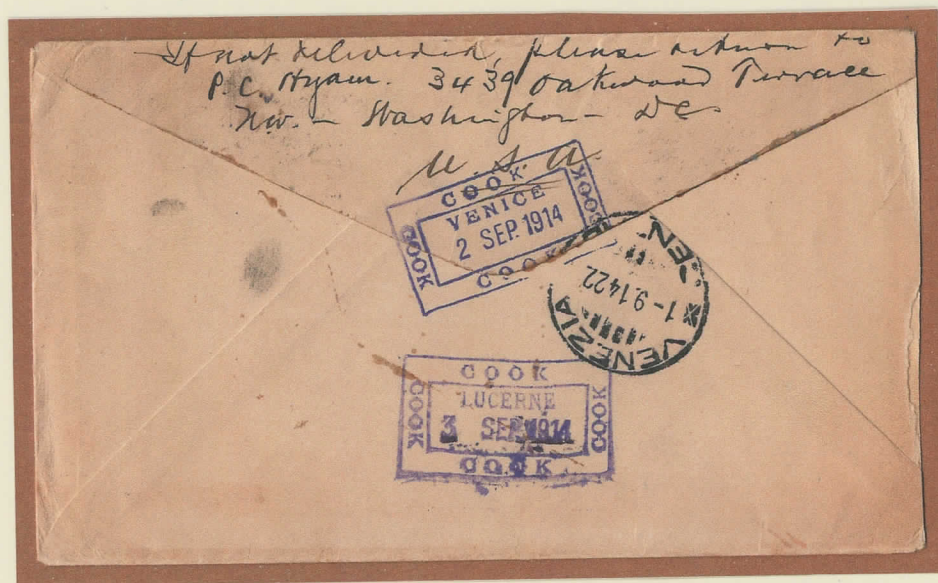 If not delivered, please return to
P. C. Hyam. 3439 Oakwood Terrace
Nw. – Washington – DC
U. S. A.
COOK
COOK
VENICE
COOK
2 SEP. 1914
COOK
VENEZIA
1-9.14 22
COOK
COOK
LUCERNE
COOK
3 SEP. 1914
COOK
COOK